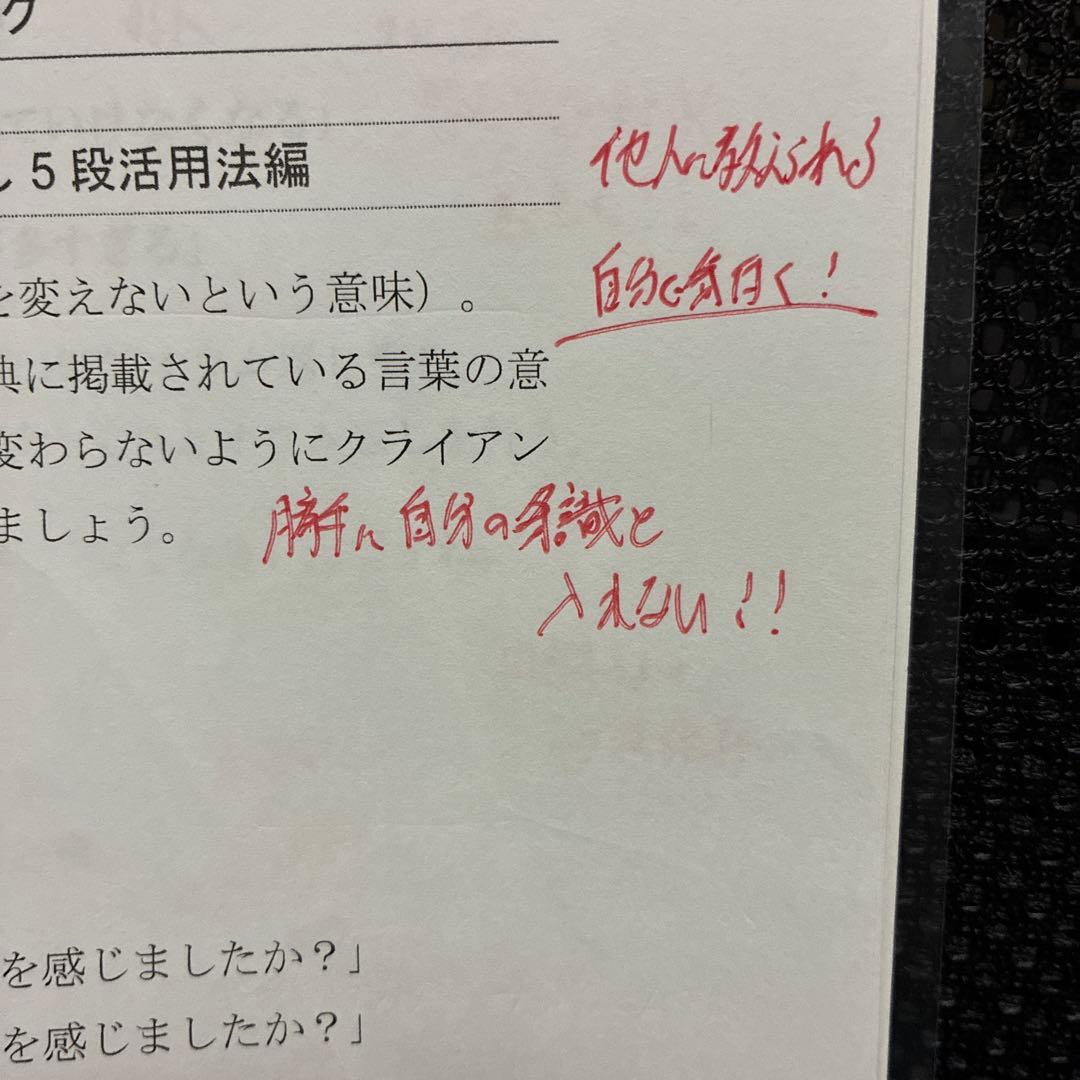 グ
し5段活用法編
他人に教えられる
自分で気付く!
を変えないという意味)。
典に掲載されている言葉の意
変わらないようにクライアン
ましょう。
勝手に自分の常識を
入れない!!
を感じましたか?」
を感じましたか?」